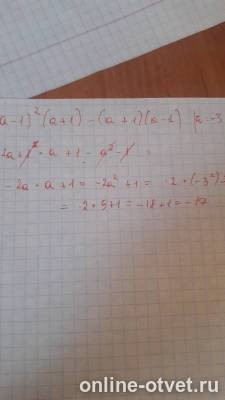 a-1)² (a+1) - (a+1)(a-1) a=-3
2a+1² · a + 1 - a² - 1 =
-2a · a + 1 = -2a² + 1 = 2 · (-3²)
= 2 · 9 + 1 = -18 + 1 = -17
online-otvet.ru